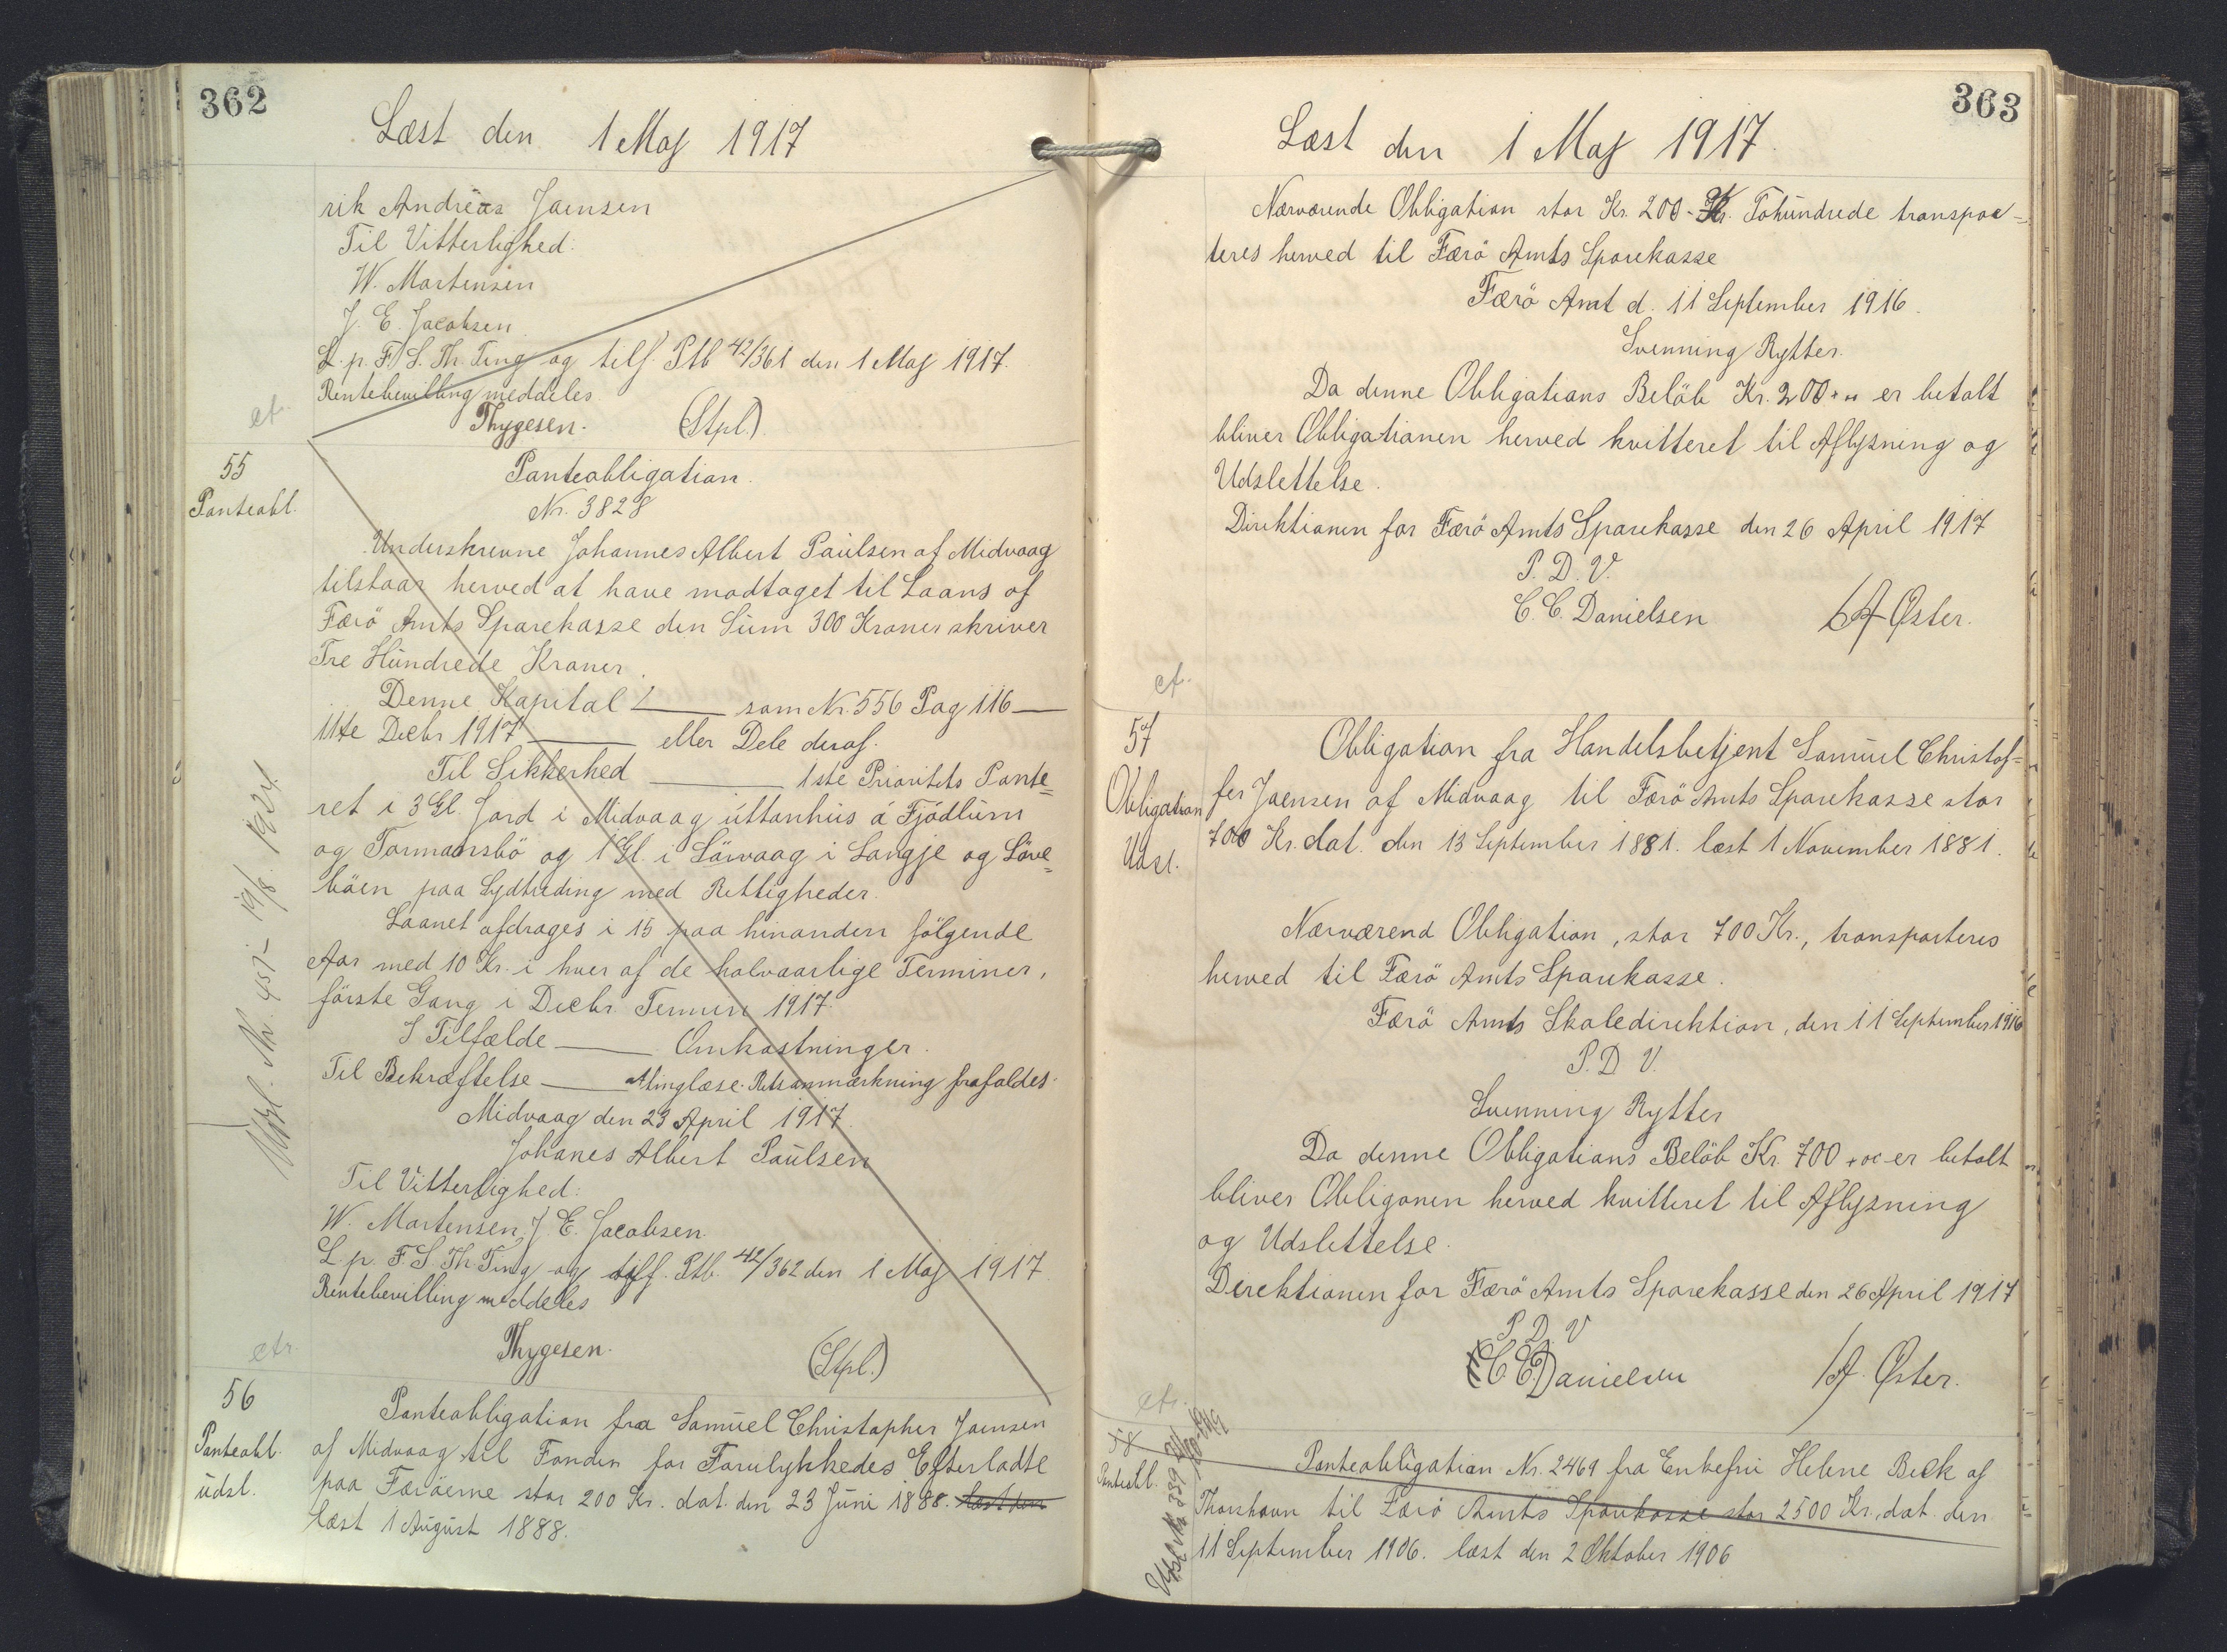 362
Læst den 1 Maj 1917
rik Andreas Joensen
Til Vitterlighed:
W. Martensen
J. E. Jacobsen
L. p. F. S. Th. Ting og tilf. Ptb 42/361 den 1 Maj 1917.
Rentebevilling meddeles
Thygesen. (Stpl.)
cf.
55
Panteobl.
Panteobligation.
Nr. 3828
Underskrevne Johannes Albert Paulsen af Midvaag
tilstaar herved at have modtaget til Laans af
Færö Amts Sparekasse den Sum 300 Kroner skriver
Tre Hundrede Kroner.
Denne Kapital ⁒ som Nr. 556 Pag 116
11te Decbr 1917 eller Dele deraf.
Til Sikkerhed 1ste Prioritets Pante=
ret i 3 Gl. Jord i Midvaag uttanhus á Fjödlum
og Tormansbö og 1 Gl. i Sörvaag i Langje og Löve=
böen paa Sydtreding med Rettigheder.
Laanet afdrages i 15 paa hinanden fölgende
Aar med 10 Kr. i hver af de halvaarlige Terminer,
förste Gang i Decbr. Termin 1917.
I Tilfælde Omkostninger.
Til Bekræftelse tinglæse. Retsanmærkning frafaldes.
Midvaag den 23 April 1917.
Johanes Albert Paulsen
Til Vitterlighed:
W. Martensen, J. E. Jacobsen.
L. p. F. S. Th. Ting og tilf. Ptb. 42/362 den 1 Maj 1917.
Rentebevilling meddeles
Thygesen. (Stpl.)
Udsl. Nr. 451- 19/8. 1924
56
Panteobl.
udsl.
Panteobligation fra Samuel Christopher Joensen
af Midvaag til Fonden for Forulykkedes Efterladte
paa Færöerne stor 200 Kr. dat. den 23 Juni 1888. læst den
læst 1 August 1888.
363
Læst den 1 Maj 1917.
Nærværende Obligation stor Kr. 200 - Kr. Tohundrede transpor-
teres herved til Færö Amts Sparekasse
Færö Amt d. 11 September 1916.
Svenning Rytter.
Da denne Obligations Belöb Kr. 200 er betalt
bliver Obligationen herved kvitteret til Aflysning og
Udslettelse.
Direktionen for Færö Amts Sparekasse den 26 April 1917
P. D. V.
C. C. Danielsen /A Øster.
cf.
57
Obligation
Udsl.
Obligation fra Handelsbetjent Samuel Christof=
fer Joensen af Midvaag til Færö Amts Sparekasse stor
700 Kr. dat. den 13 September 1881. læst 1 November 1881.
Nærværend Obligation, stor 700 Kr., transporteres
herved til Færö Amts Sparekasse.
Færö Amts Skoledirektion, den 11 September 1916
P. D. V.
Svenning Rytter
Da denne Obligations Belöb Kr. 700 er betalt
bliver Obligonen herved kvitteret til Aflysning
og Udslettelse.
Direktionen for Færö Amts Sparekasse den 26 April 1917
P. D. V
C. C. Danielsen /A. Øster.
58
Panteobl.
Panteobligation Nr. 2469 fra Enkefru Helene Beck af
Thorshavn til Færö Amts Sparekasse stor 2500 Kr. dat. den
11 September 1906. læst den 2 Oktober 1906